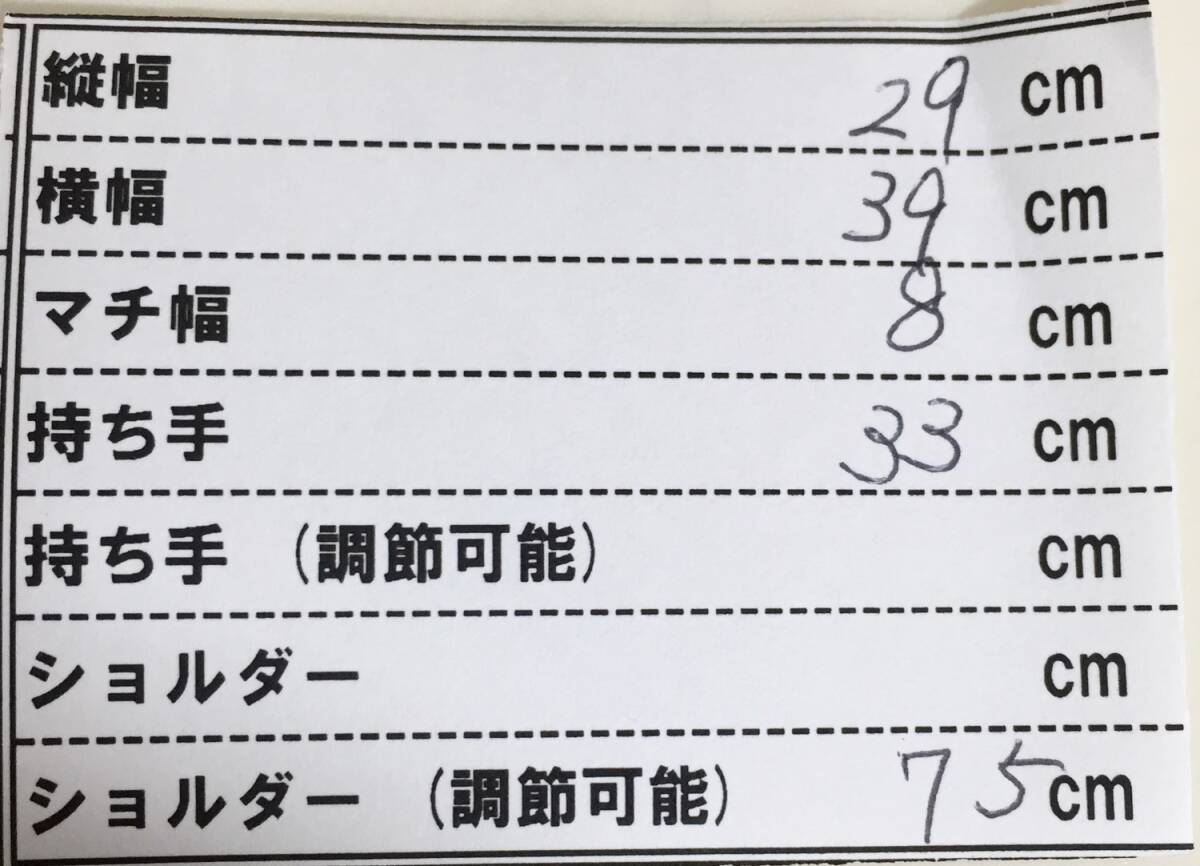 縦幅 29 cm
横幅 39 cm
マチ幅 8 cm
持ち手 33 cm
持ち手 (調節可能) cm
ショルダー cm
ショルダー (調節可能) 75 cm